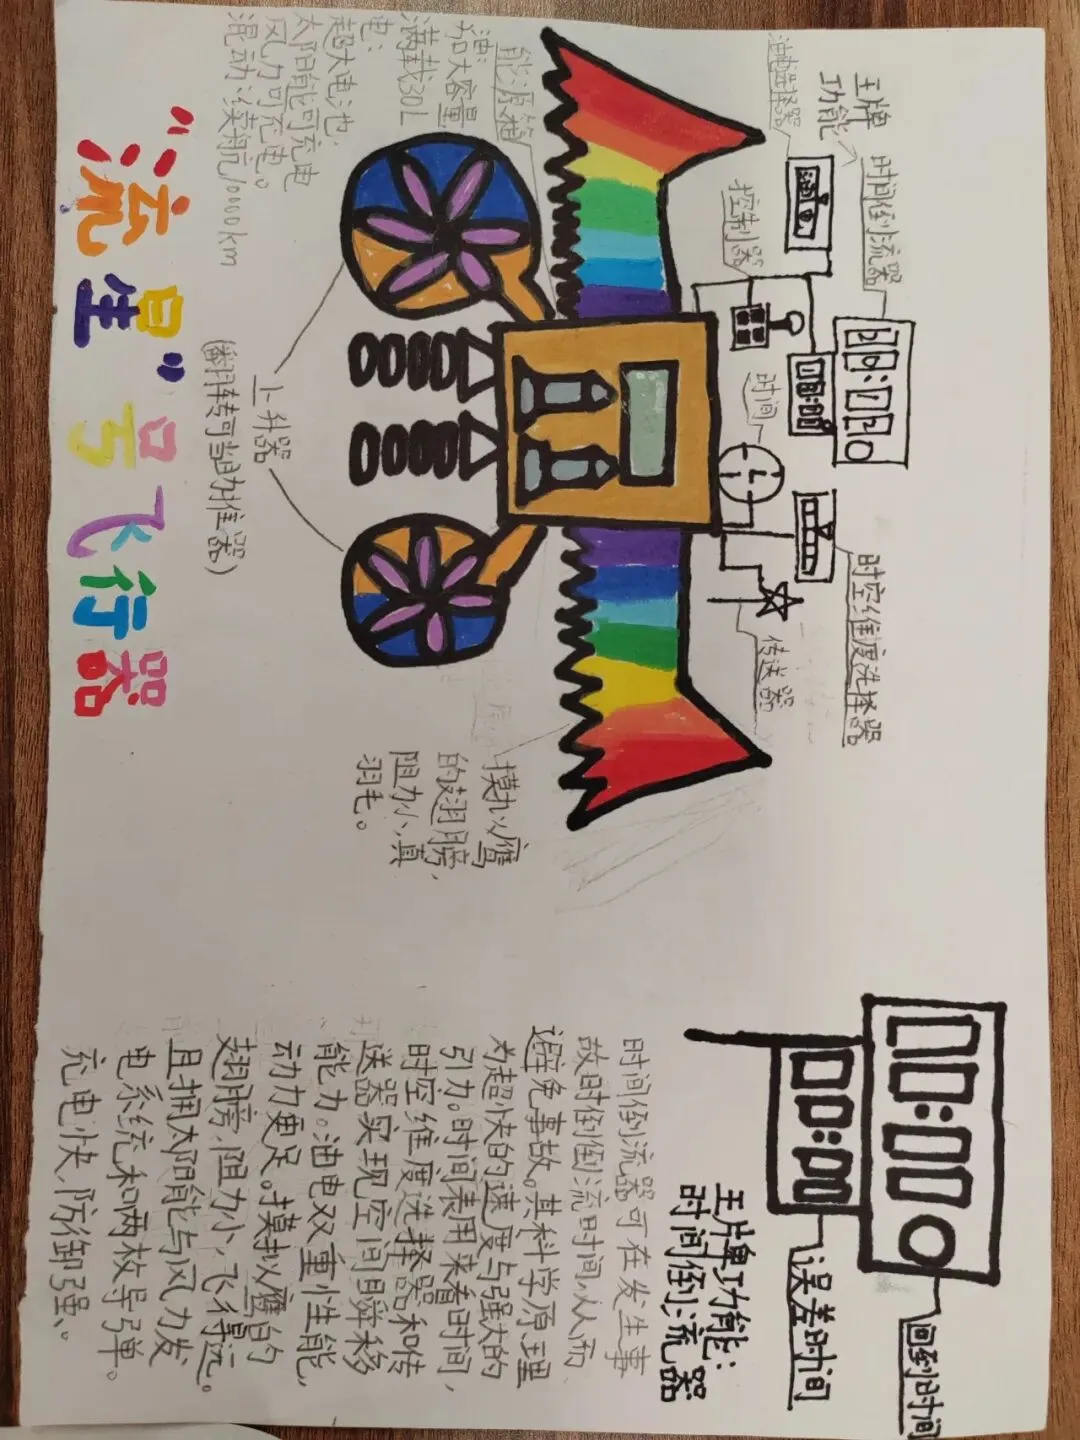 王牌功能:
时间倒流器
回到时间
误差时间
00:00
时间倒流器可在发生事
故时倒倒流时间,从而
避免事故。其科学原理
为超快的速度与强大的
引力。时间表用来看时间,
时空维度选择器和传
送器实现空间瞬移
能力。油电双重性能,
动力更足。摸拟鹰的
翅膀,阻力小,飞得远。
且拥太阳能与风力发
电系统和两枚导弹。
充电快,防御强。
王牌
功能
时间倒流器
油电选择器
控制器
时间
08:00
时空维度选择器
传送器
能源箱
油:
加大容量
满载30L
电:
超大电池
太阳能可充电
风力可充电。
混动:续航10000km
上升器
(翻转可当助推器)
摸拟鹰
的翅膀,
阻力小,真
羽毛。
“流星”号飞行器